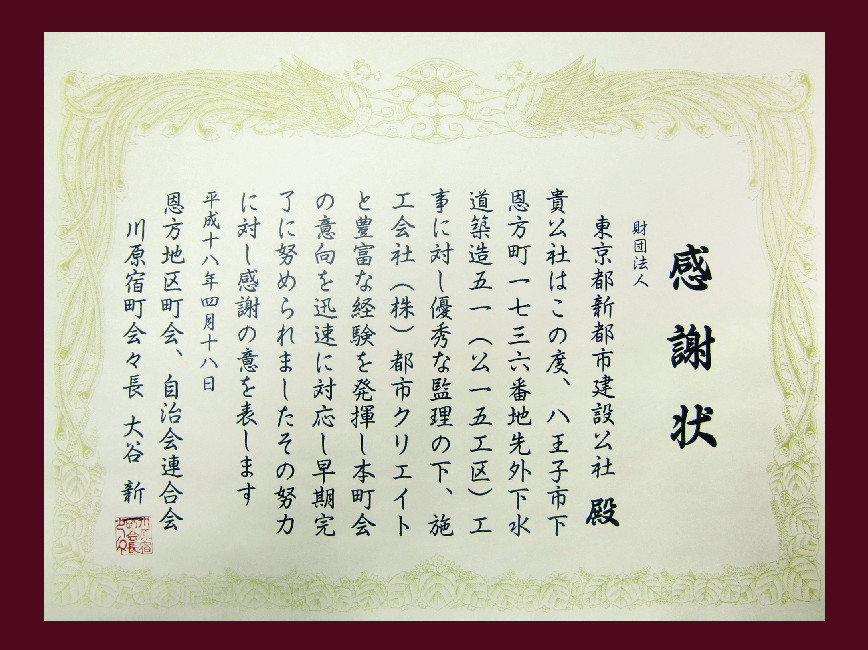 感謝状
財団法人
東京都新都市建設公社 殿
貴公社はこの度、八王子市下
恩方町一七三六番地先外下水
道築造五一（公一五工区）工
事に対し優秀な監理の下、施
工会社（株）都市クリエイト
と豊富な経験を発揮し本町会
の意向を迅速に対応し早期完
了に努められましたその努力
に対し感謝の意を表します
平成十八年四月十八日
恩方地区町会、自治会連合会
川原宿町会々長 大谷 新一